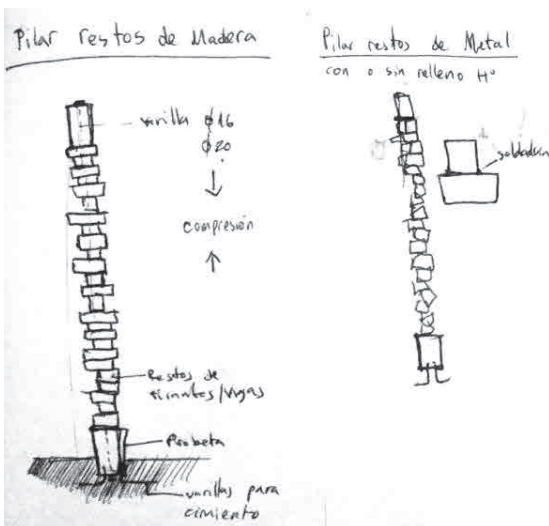 Pilar restos de Madera
varilla ϕ16
ϕ20
compresión
Restos de
tirantes/vigas
Probeta
varillas para
cimiento
Pilar restos de Metal
con o sin relleno Hº
soldadura